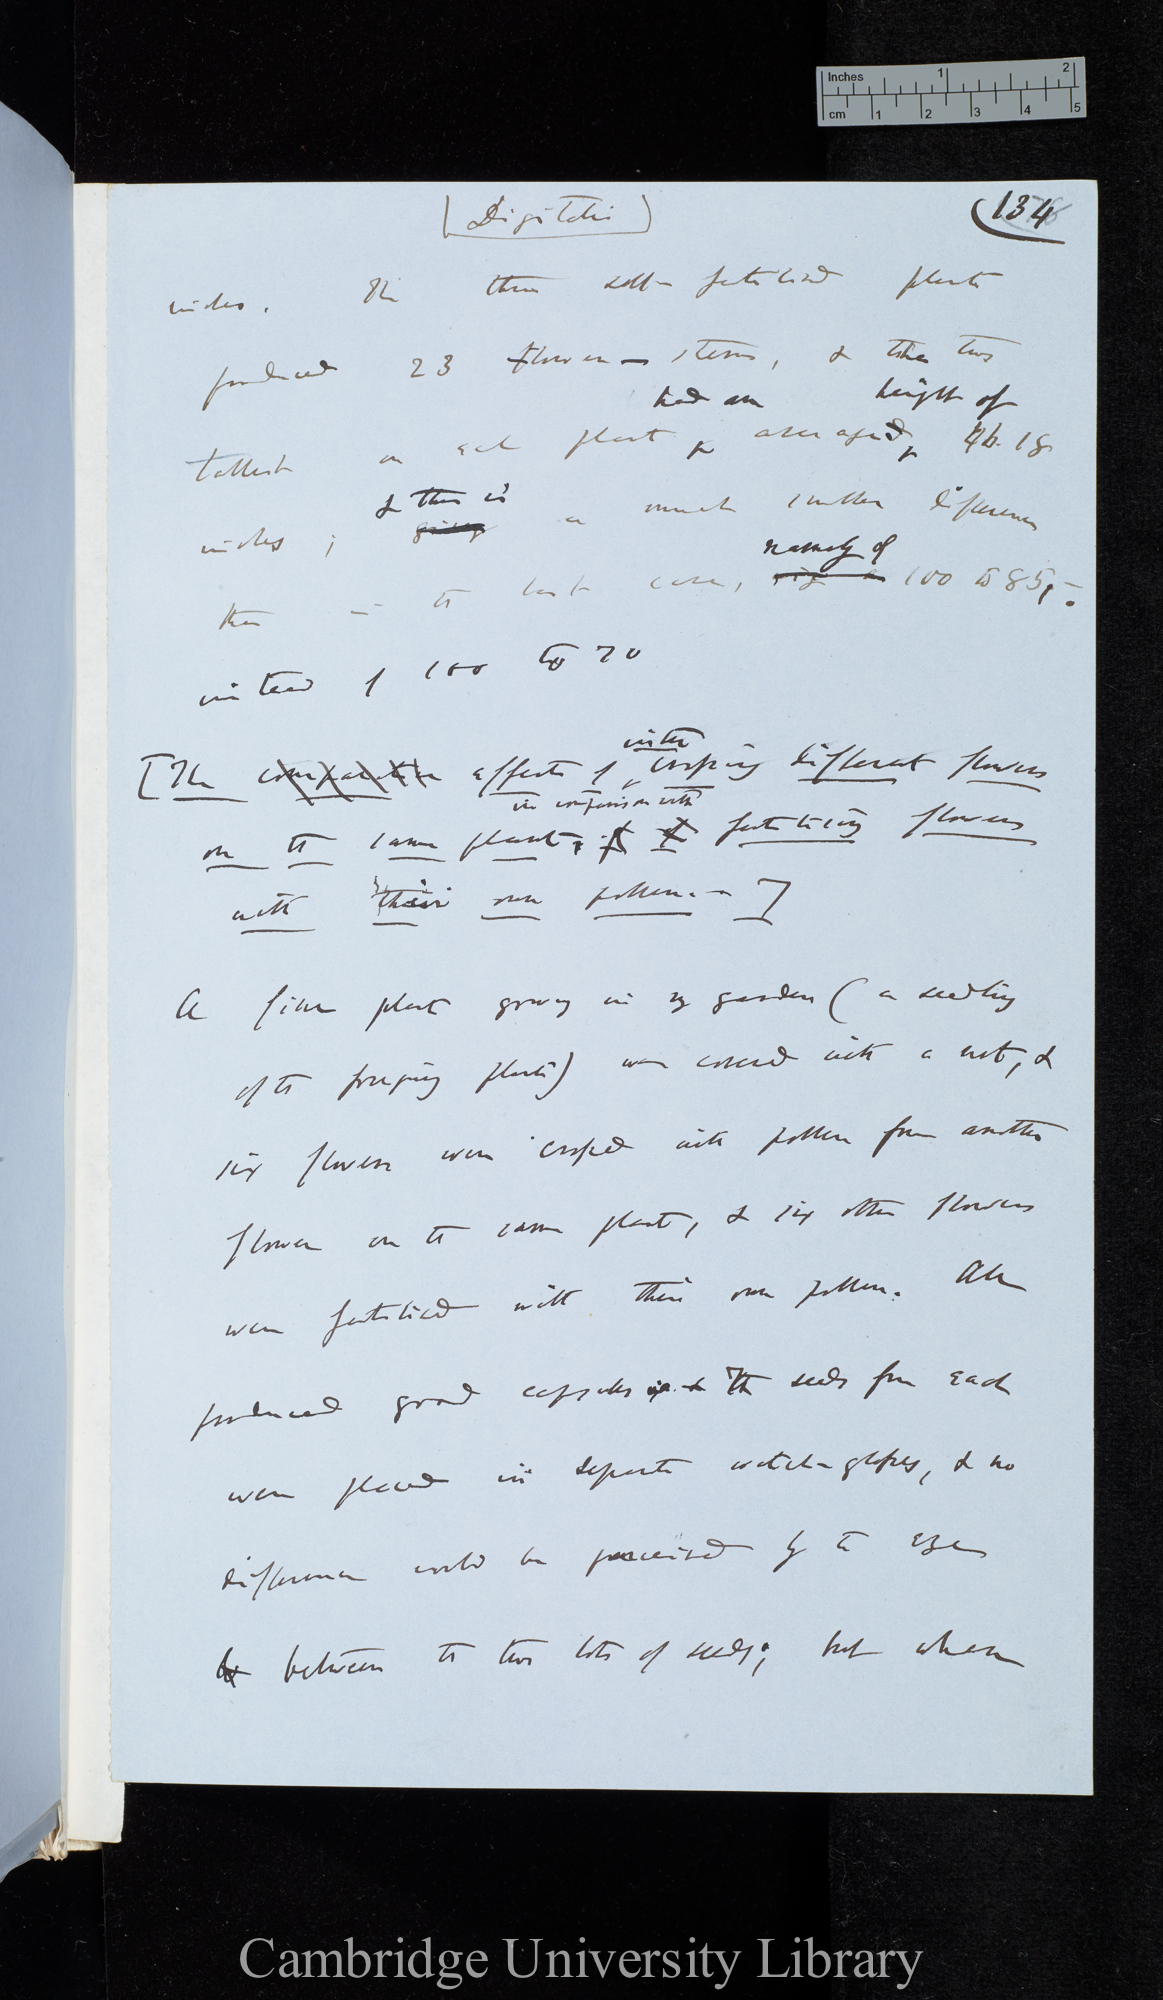 Inches 1 2
cm 1 2 3 4 5
[Digitalis]
134
inches. The three self-fertilised plants
produced 23 flower-stems, & the two
had an height of
tallest on each plant averaged, 46.18
& this is
inches; giving a much smaller difference
namely of
than in the last case, 100 to 85,-
instead of 100 to 70
inter
[The comparative effects of crossing different flowers
in comparison with
on the same plant, fertilising flowers
with their own pollen.-]
A fine plant growing in my garden (a seedling
of the foregoing plants) was covered with a net, &
six flowers were crossed with pollen from another
flower on the same plant, & six other flowers
were fertilised with their own pollen. All
produced good capsules The seeds from each
were placed in separate watch-glasses, & no
difference could be perceived by the eye
between the two lots of seeds; but when
Cambridge University Library